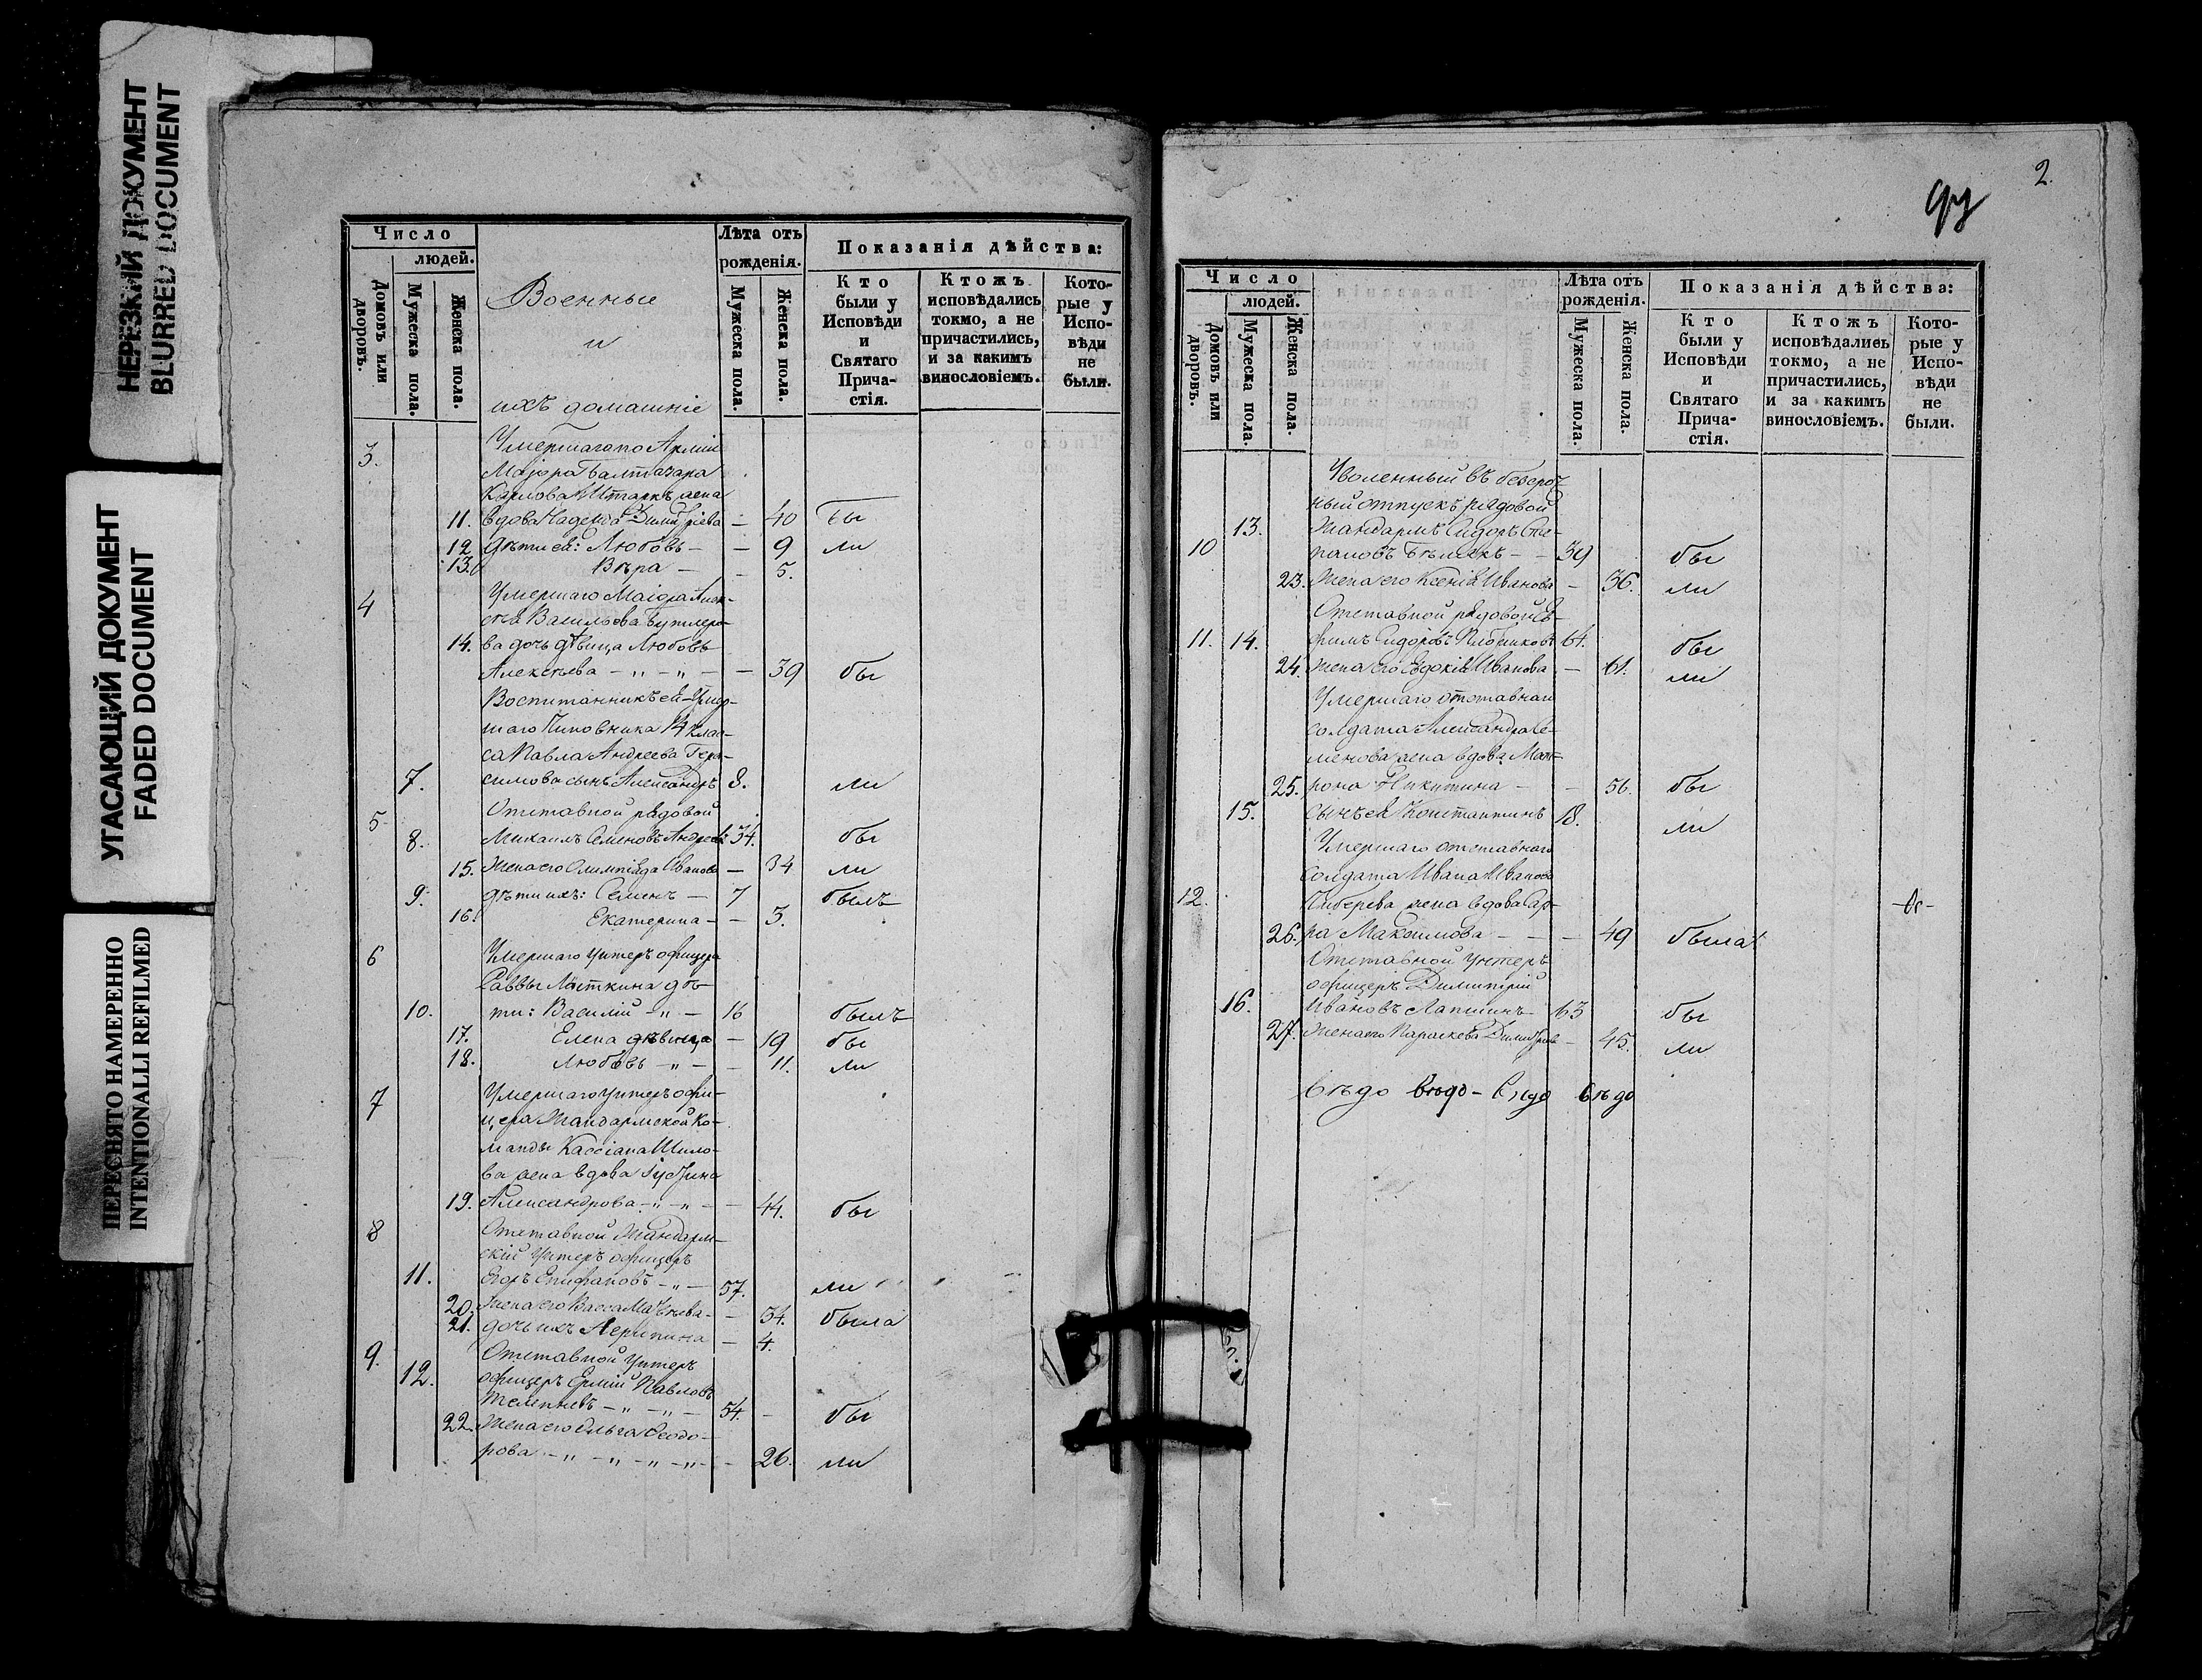 НЕРЕЗКИЙ ДОКУМЕНТ
BLURRED DOCUMENT
УГАСАЮЩИЙ ДОКУМЕНТ
FADED DOCUMENT
ПЕРЕСНЯТО НАМЕРЕННО
INTENTIONALLI REFILMED
Число
людей.
Домовъ или дворовъ.
Мужеска пола.
Женска пола.
Военные
и
ихъ домашніе
Лѣта отъ рожденія.
Мужеска пола.
Женска пола.
Показанія дѣйства:
Кто были у Исповѣди и Святаго Причастія.
Ктожъ исповѣдались токмо, а не причастились, и за какимъ винословіемъ.
Которые у Исповѣди не были.
3. Умершаго по Арміи
Маіора Балтазара
Карлова Штаркъ жена
11. вдова Надежда Димитріева — 40 Бы
12. дѣти ея: Любовь — — 9 ли
13. Вѣра — — 5.
4 Умершаго Маіора Алек-
сѣя Васильева Бутлеро-
14. ва дочь дѣвица Любовь
Алексѣева — „ — „ — — 39 бы
Воспитанникъ ея Умер-
шаго Чиновника 14 клас-
са Павла Андреева Гера-
7. симова сынъ Александръ 8. ли
5 Отставной рядовой
8. Михаилъ Семеновъ Андреевъ 34. бы
15. Жена его Олимпіада Иванова — 34 ли
9. дѣти ихъ: Семенъ — 7 былъ
16. Екатерина — — 3.
6 Умершаго Унтеръ офицера
Саввы Ляткина дѣ-
10. ти: Василій — „ — 16 былъ
17. Елена дѣвица — 19 бы
18. Любовь — „ — — 11. ли
7 Умершаго Унтеръ офи-
цера Жандармской Ко-
манды Кассіана Шило-
ва жена вдова Іустина
19. Александрова — „ — „ — — 44. бы
8 Отставной Жандарм-
скій Унтеръ офицеръ
11. Егоръ Епифановъ — „ — 57. ли
20. Жена его Васса Матвѣева — — 34. была
21. дочь ихъ Агрипина — 4.
9. Отставной Унтеръ
12. офицеръ Ермій Павловъ
Телепневъ — „ — „ — 54. — бы
22. Жена его Ольга Ѳеодо-
рова — „ — „ — „ — „ — — 26. ли
2.
Число
людей.
Домовъ или дворовъ.
Мужеска пола.
Женска пола.
Лѣта отъ рожденія.
Мужеска пола.
Женска пола.
Показанія дѣйства:
Кто были у Исповѣди и Святаго Причастія.
Ктожъ исповѣдались токмо, а не причастились, и за какимъ винословіемъ.
Которые у Исповѣди не были.
Уволенный въ безсроч-
ный отпускъ рядовой
13. Жандармъ Сидоръ Сте-
10 пановъ — — 39 бы
23. Жена его Ксенія Иванова — 36. ли
Отставной рядовой Е-
11. 14. фимъ Сидоровъ 64. бы
24. жена его Евдокія Иванова — 61. ли
Умершаго отставнаго
солдата Александра Се-
менова жена вдова Мат-
25. рона Никитина — — 56. бы
15. Сынъ ея Константинъ 18. ли
Умершаго отставнаго
солдата Ивана Иванова
12. жена вдова Вар-
26. ра Максимова — — — 49 была
Отставной Унтеръ
офицеръ Димитрій
16. Ивановъ Лапшинъ 63 бы
27. Жена его Параскева Димитріева — 45. ли